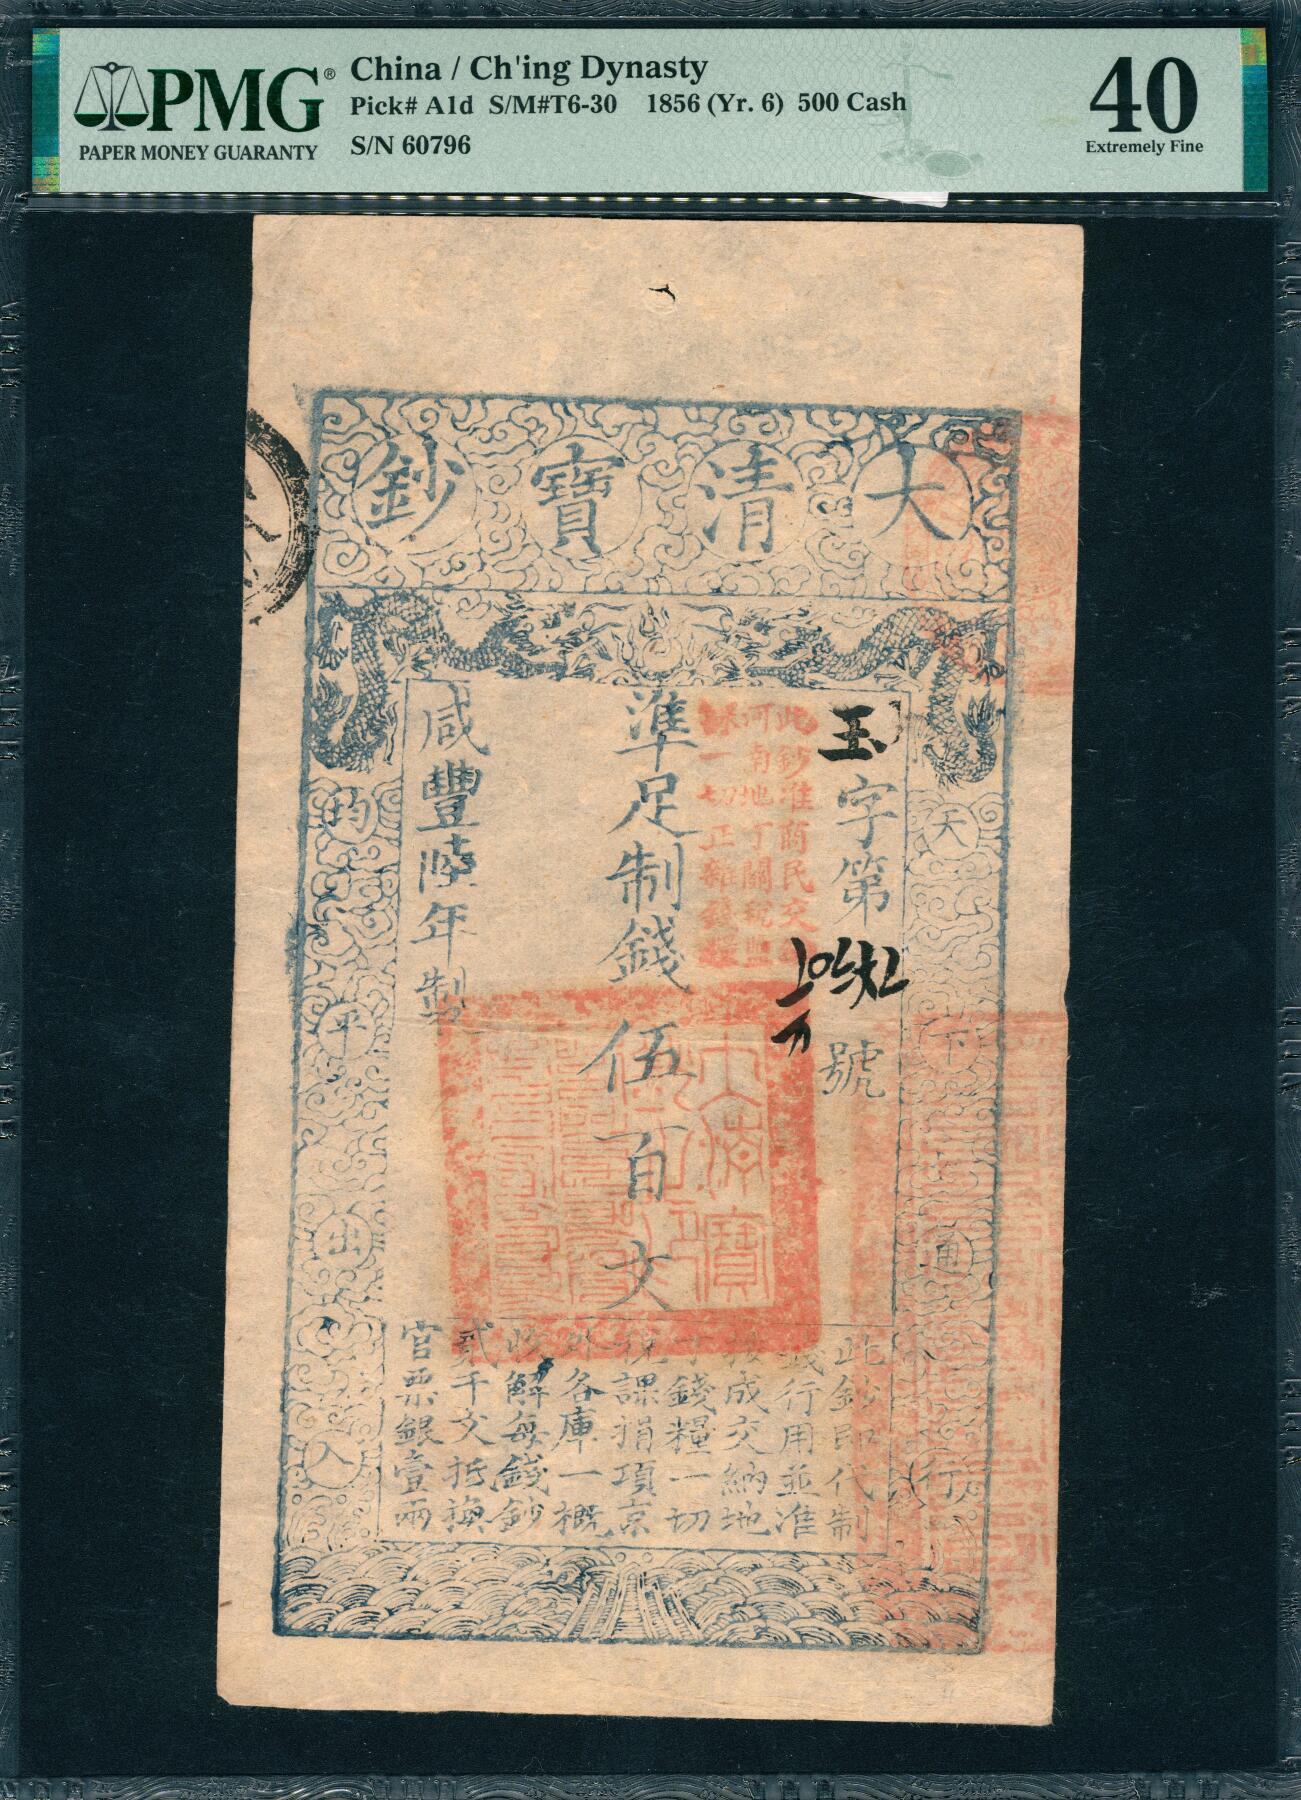 PMG®
PAPER MONEY GUARANTY
China / Ch'ing Dynasty
Pick# A1d S/M#T6-30 1856 (Yr. 6) 500 Cash
S/N 60796
40
Extremely Fine
大清寶鈔
天下通行
均平出入
玉字第
號
準足制錢伍百文
咸豐陸年製
此鈔准商民交納
河南地丁關稅鹽
課一切正雜錢糧
大清寶
此鈔即代制
錢行用並准
按成交納地
丁錢糧一切
稅課捐項京
外各庫一概
收解每錢鈔
貳千文抵換
官票銀壹兩